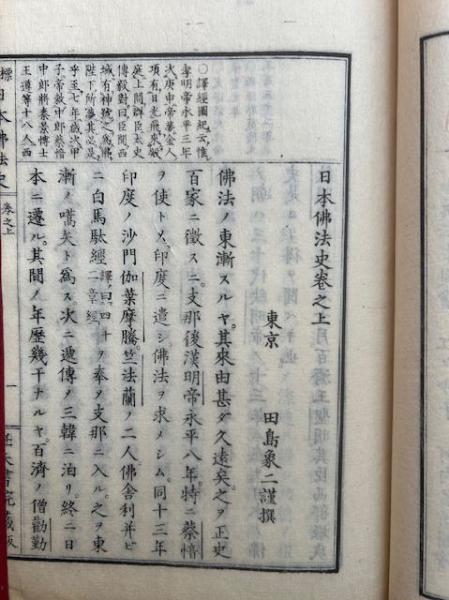 日本佛法史巻之上
東京 田島象二謹撰
佛法ノ東漸スルヤ。其來由甚ダ久遠矣。之ヲ正史
百家ニ徴スニ。支那後漢明帝永平八年。特ニ蔡愔
ヲ使トメ。印度ニ遣シ。佛法ヲ求メシム。同十三年
印度ノ沙門伽葉摩騰竺法蘭ノ二人。佛舎利并ビ
ニ白馬駄經譯曰四十二章經ヲ奉ヲ支那ニ入ル。之ヲ東
漸ノ嚆矢ト爲ス。次ニ遞傳ノ三韓ニ泊リ。終ニ日
本ニ遷ル。其間ノ年歴幾干ナルヤ。百濟ノ僧勸勤
○譯經圖紀云。惟
孝明帝永平三年
次庚申帝夢金人
項有日光飛來殿
庭上問群臣太史
傅毅對曰臣聞西
域有神號之爲佛
陛下所夢其必是
乎至七年歳次甲
子帝敕中郎蔡愔
中郎將秦景博士
王遵等十八人西
標日本佛法史 巻之上 一 任天書院藏版